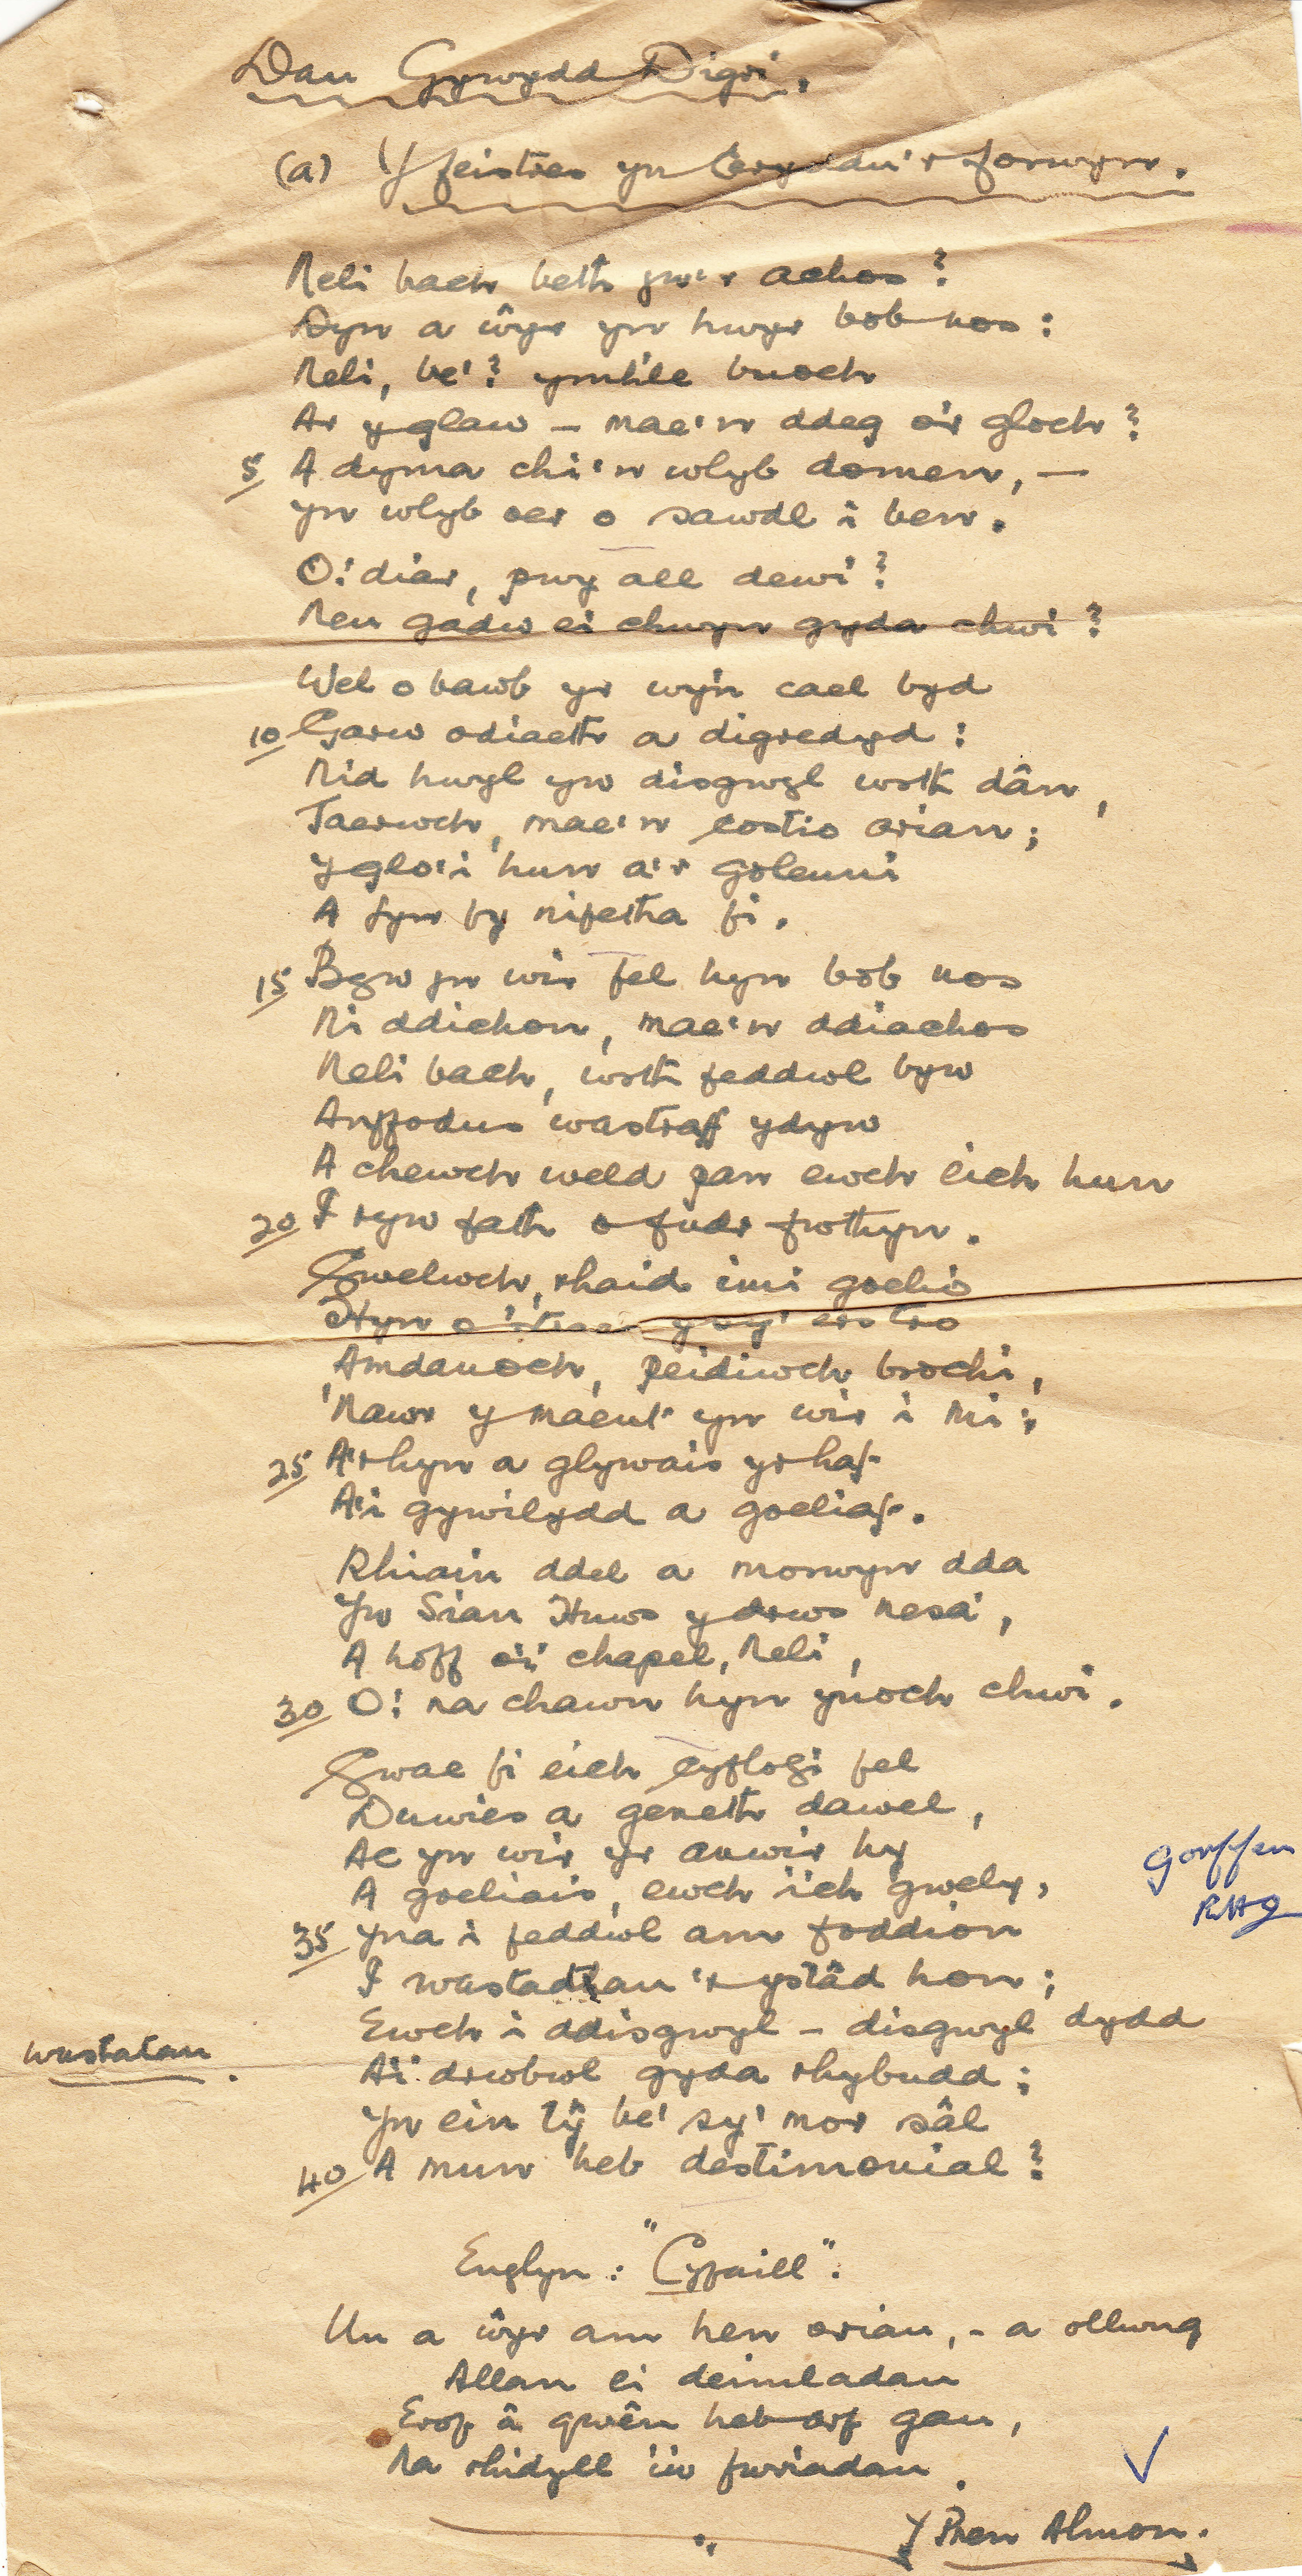 Dau Gywydd Digri.
(a) Y feistres yn Ceryddu'r forwyn.
Neli bach beth yw'r achos?
Dyn a ŵyr yn hwyr bob nos:
Neli, be'? ymhle buoch
Ar y glaw – mae'n ddeg o'r gloch?
5 A dyma chi'n wlyb domen, –
Yn wlyb oer o sawdl i ben.
O! diar, pwy all dewi?
Neu gadw ei chwyn gyda chwi?
Wel o bawb yr wy'n cael byd
10 Garw odiaeth a digredyd:
Nid hwyl yw disgwyl wrth dân,
Taerwch, mae'n costio arian;
Y glo'i hun a'r goleuni
A fyn fy nifetha fi.
15 Byw yn wir fel hyn bob nos
Ni ddichon, mae'n ddiachos
Neli bach, wrth feddwl byw
Anffodus wastraff ydyw
A chewch weld pan ewch eich hun
20 I ryw fath o fudr fwthyn.
Gwelwch, rhaid imi goelio
Hyn o 'straes y sy' ers tro
Amdanoch, peidiwch brochi,
'Nawr y maent yn wir i mi;
25 A'r hyn a glywais yr haf
A'i gywilydd a goeliaf.
Rhiain ddel a morwyn dda
Yw Sian Huws y drws nesa',
A hoff o'i chapel, Neli,
30 O! na chawn hyn ynoch chwi.
Gwae fi eich cyflogi fel
Duwies a geneth dawel,
Ac yn wir yr anwir hy
A goeliais, ewch i'ch gwely,
35 Yna i feddwl am foddion
I wastadtau'r ystâd hon;
Ewch i ddisgwyl – disgwyl dydd
A'i drwbwl gyda rhybudd;
Yn ein tŷ be' sy' mor sâl
40 A mun heb destimonial?
Gorffen
RHG
wastatau.
Englyn: "Cyfaill".
Un a ŵyr am hen oriau, – a ollwng
Allan ei deimladau
Erof â gwên heb arf gau,
Na rhidyll i'w fwriadau.
Y Pren Almon.